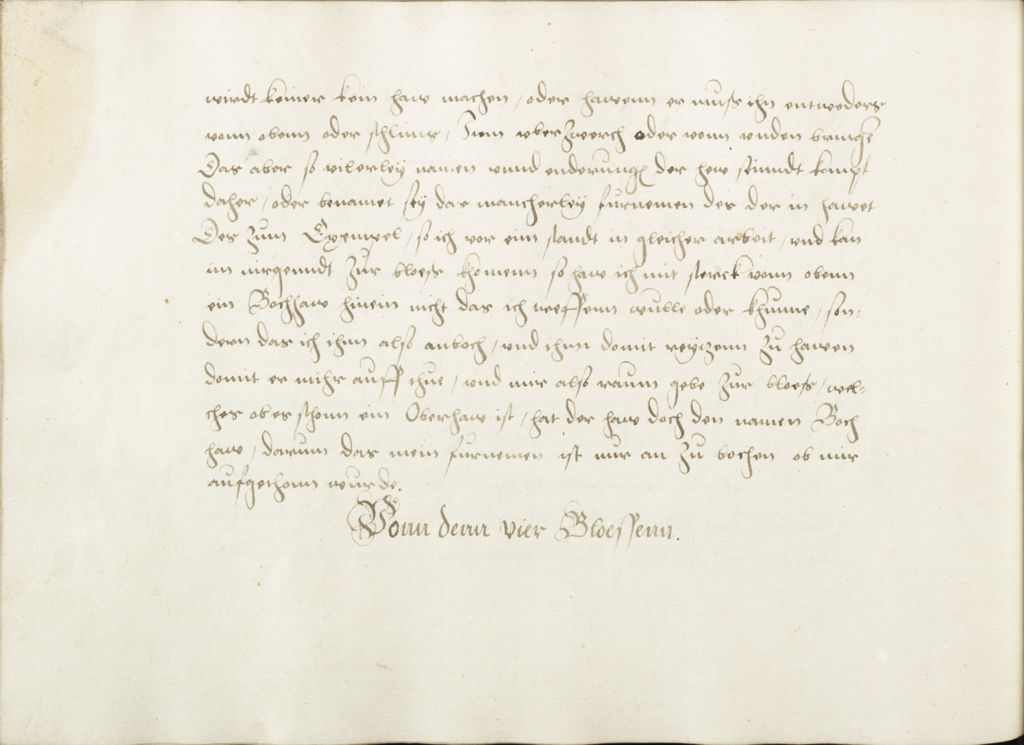 wirdt keiner kein haw machen, oder hawenn er muss ihn entweders
vonn obenn oder schlims, Item uberzwerch oder vonn unden bringe
Das aber so vilerley namen unnd enderung der hew seinndt kompt
daher, oder benamet sey das mancherley furnemen des der in hawet
Des zum Exempel, so ich vor eim standt in gleicher arbeit, und kan
im nirgenndt zur bloess khomenn so haw ich mit sterck vonn obenn
ein Bochhaw hinein nicht das ich treffenn wulle oder khunne, son-
dern das ich ihnn also anboch, und ihnn domit reytzenn zu hawen
domit er mihr auff thue, und mir also raum gebe zur bloess, wel-
ches obes schonn ein Oberhaw ist, hat der haw doch den namen Boch
haw, darum das mein furnemen ist nur an zu bochen ob mir
aufgethonn wurde.
Vonn denn vier Bloessenn.